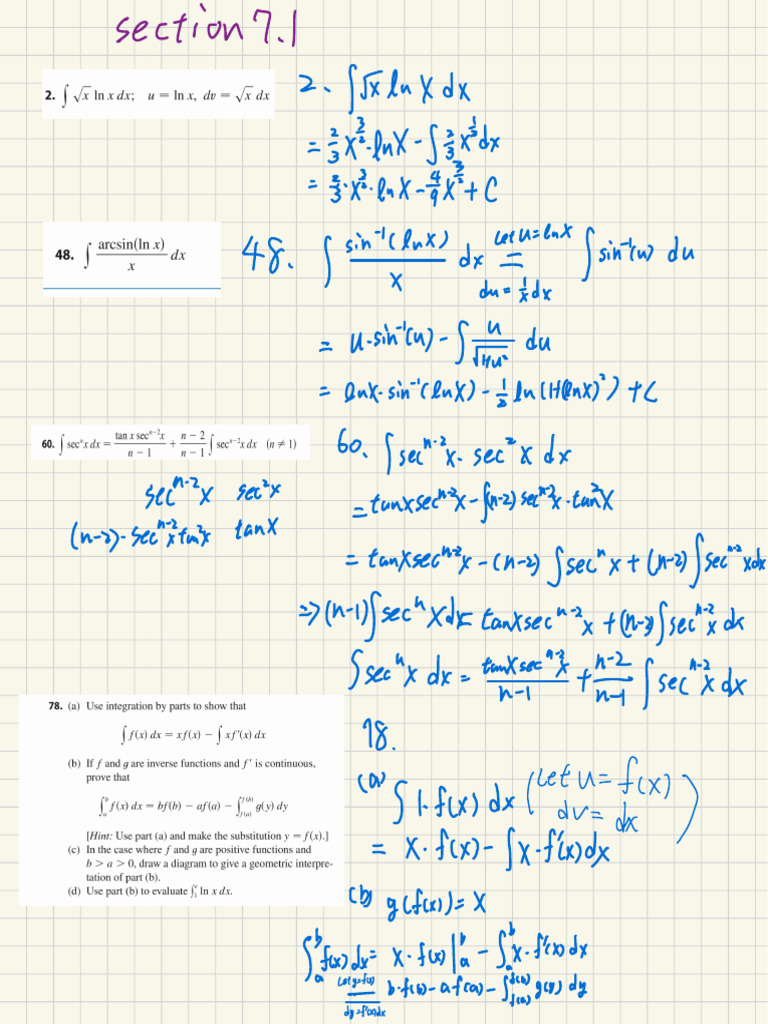 section 7.1
2. ∫ √x ln x dx; u = ln x, dv = √x dx
2. ∫ √x ln x dx
= 2/3 x^(3/2) · ln x - ∫ 2/3 x^(1/2) dx
= 2/3 · x^(3/2) · ln x - 4/9 x^(3/2) + C
48. ∫ arcsin(ln x)/x dx
48. ∫ sin⁻¹(ln x)/x dx = let u = ln x du = 1/x dx ∫ sin⁻¹(u) du
= u · sin⁻¹(u) - ∫ u/√(1+u²) du
= ln x · sin⁻¹(ln x) - 1/2 ln(1+(ln x)²) + C
60. ∫ secⁿx dx = (tan x secⁿ⁻²x)/(n - 1) + (n - 2)/(n - 1) ∫ secⁿ⁻²x dx (n ≠ 1)
secⁿ⁻²x sec²x
(n-2) · secⁿ⁻²x tan²x tan x
60. ∫ secⁿ⁻²x · sec²x dx
= tan x secⁿ⁻²x - ∫(n-2) secⁿ⁻²x · tan²x
= tan x secⁿ⁻²x - (n-2) ∫ secⁿx + (n-2) ∫ secⁿ⁻²x dx
=> (n-1) ∫ secⁿx dx = tan x secⁿ⁻²x + (n-2) ∫ secⁿ⁻²x dx
∫ secⁿx dx = (tan x secⁿ⁻²x)/(n-1) + (n-2)/(n-1) ∫ secⁿ⁻²x dx
78. (a) Use integration by parts to show that
∫ f(x) dx = xf(x) - ∫ xf′(x) dx
(b) If f and g are inverse functions and f′ is continuous,
prove that
∫_a^b f(x) dx = bf(b) - af(a) - ∫_f(a)^f(b) g(y) dy
[Hint: Use part (a) and make the substitution y = f(x).]
(c) In the case where f and g are positive functions and
b > a > 0, draw a diagram to give a geometric interpre-
tation of part (b).
(d) Use part (b) to evaluate ∫₁ᵉ ln x dx.
78.
(a) ∫ 1 · f(x) dx (let u = f(x)
dv = dx)
= x · f(x) - ∫ x · f′(x) dx
(b) g(f(x)) = x
∫_a^b f(x) dx = x · f(x) |_a^b - ∫_a^b x · f′(x) dx
let y = f(x) dy = f′(x) dx = b · f(b) - a f(a) - ∫_f(a)^f(b) g(y) dy